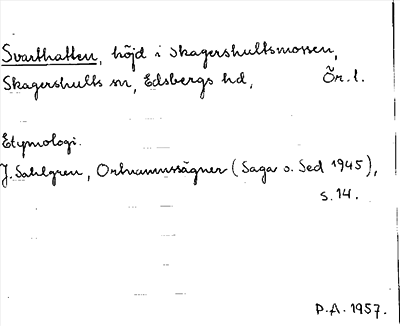 Svarthatten, höjd i Skagershultsmossen,
Skagershults sn, Edsbergs hd, Ör. l.
Etymologi.
J. Sahlgren, Ortnamnssägner (Saga o. Sed 1945),
s. 14.
P.A. 1957.